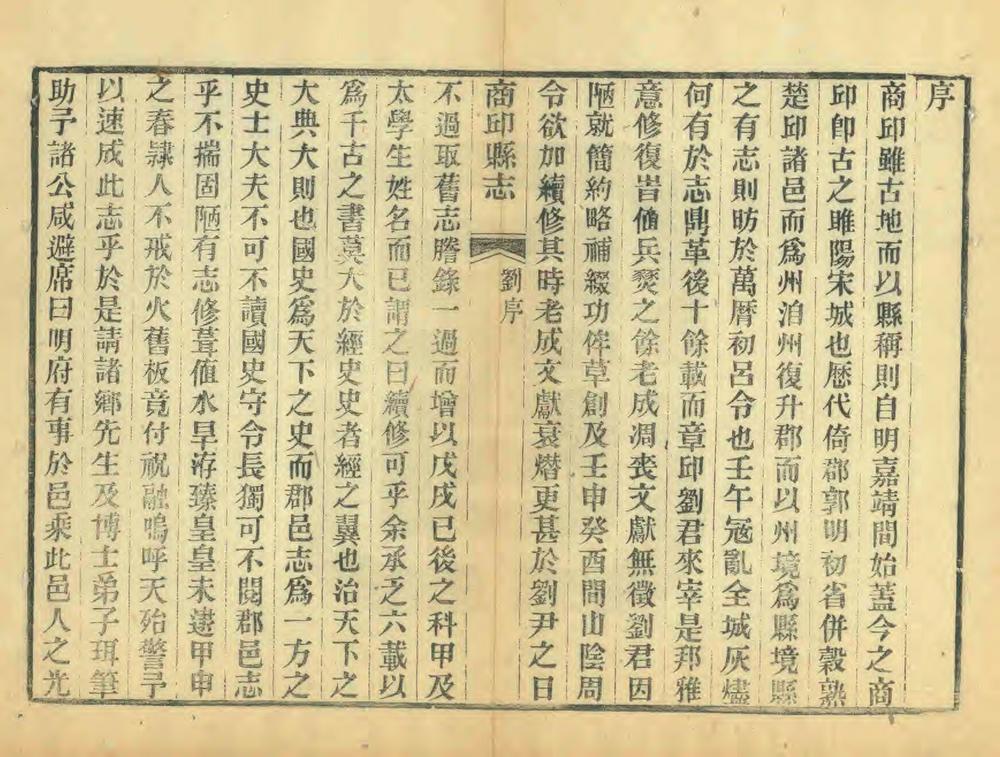 序
商邱雖古地而以縣稱則自明嘉靖間始蓋今之商
邱卽古之睢陽宋城也歴代倚郡郭明初省併穀熟
楚邱諸邑而爲州洎州復升郡而以州境爲縣境縣
之有志則昉於萬厯初呂令也壬午冦亂全城灰燼
何有於志鼎革後十餘載而章邱劉君來宰是邦雅
意修復旹値兵燹之餘老成凋喪文獻無徵劉君因
陋就簡約略補綴功侔草創及壬申癸酉間山陰周
令欲加續修其時老成文獻衰熸更甚於劉尹之日
商邱縣志
劉序
不過取舊志謄錄一過而增以戊戌已後之科甲及
太學生姓名而已謂之曰續修可乎余承乏六載以
爲千古之書莫大於經史史者經之翼也治天下之
大典大則也國史爲天下之史而郡邑志爲一方之
史士大夫不可不讀國史守令長獨可不閱郡邑志
乎不揣固陋有志修葺値水旱洊臻皇皇未遑甲申
之春隷人不戒於火舊板竟付祝融嗚呼天殆警予
以速成此志乎於是請諸鄉先生及博士弟子珥筆
助予諸公咸避席曰明府有事於邑乘此邑人之光